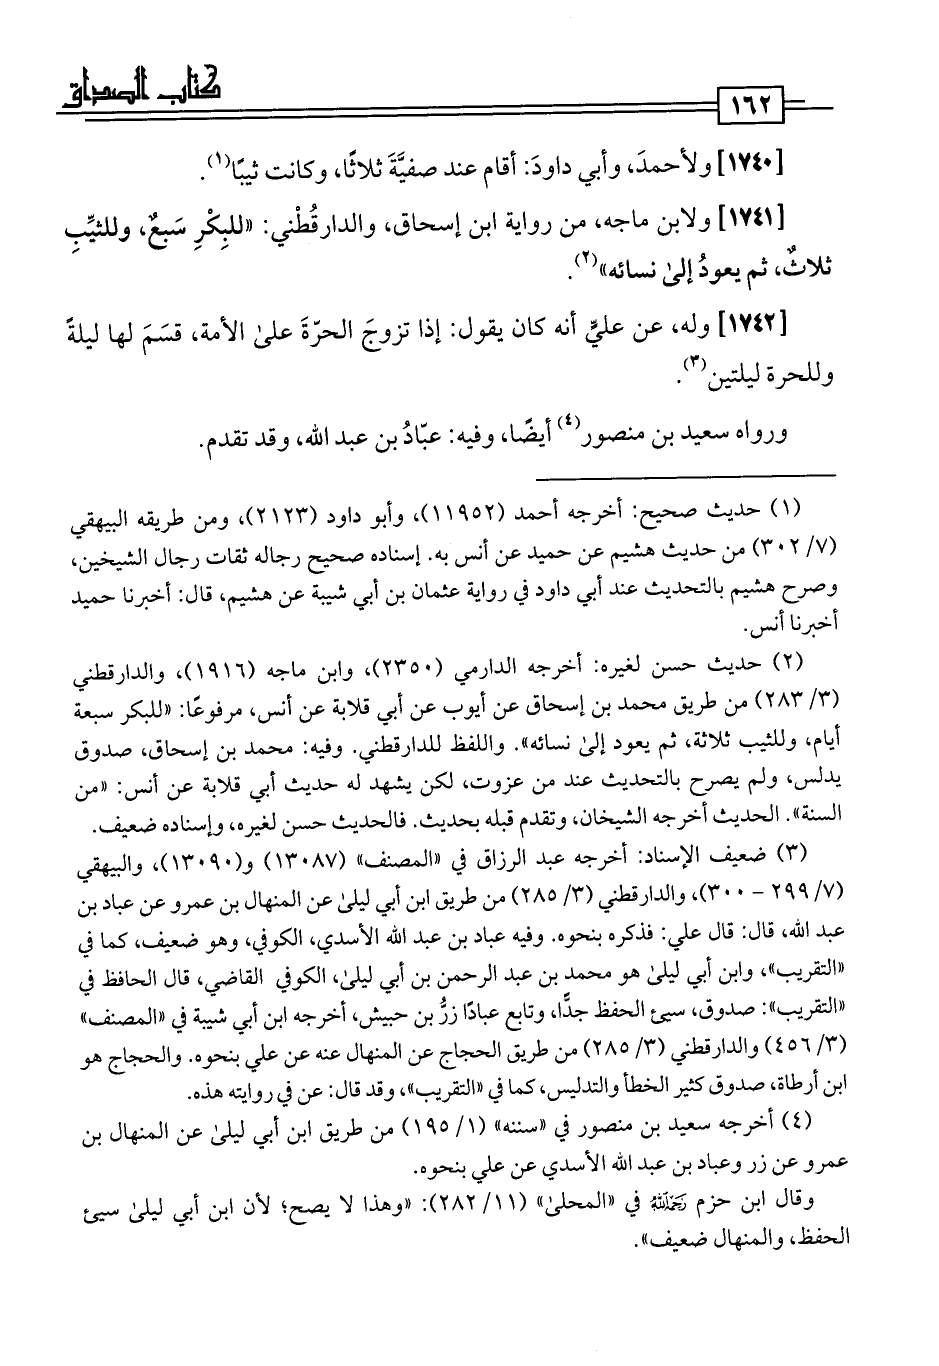 كتاب الصداق
١٦٢
[١٧٤٠] ولأحمدَ، وأبي داودَ: أقام عند صفيَّةَ ثلاثًا، وكانت ثيبًا(١).
[١٧٤١] ولابن ماجه، من رواية ابن إسحاق، والدارقُطْني: «للبِكْرِ سَبعٌ، وللثيِّبِ
ثلاثٌ، ثم يعودُ إلىٰ نسائه»(٢).
[١٧٤٢] وله، عن عليٍّ أنه كان يقول: إذا تزوجَ الحرّةَ علىٰ الأمة، قسَمَ لها ليلةً
وللحرة ليلتين(٣).
ورواه سعيد بن منصور(٤) أيضًا، وفيه: عبّادُ بن عبد الله، وقد تقدم.
(١) حديث صحيح: أخرجه أحمد (١١٩٥٢)، وأبو داود (٢١٢٣)، ومن طريقه البيهقي
(٧/ ٣٠٢) من حديث هشيم عن حميد عن أنس به. إسناده صحيح رجاله ثقات رجال الشيخين،
وصرح هشيم بالتحديث عند أبي داود في رواية عثمان بن أبي شيبة عن هشيم، قال: أخبرنا حميد
أخبرنا أنس.
(٢) حديث حسن لغيره: أخرجه الدارمي (٢٣٥٠)، وابن ماجه (١٩١٦)، والدارقطني
(٣/ ٢٨٣) من طريق محمد بن إسحاق عن أيوب عن أبي قلابة عن أنس، مرفوعًا: «للبكر سبعة
أيام، وللثيب ثلاثة، ثم يعود إلىٰ نسائه». واللفظ للدارقطني. وفيه: محمد بن إسحاق، صدوق
يدلس، ولم يصرح بالتحديث عند من عزوت، لكن يشهد له حديث أبي قلابة عن أنس: «من
السنة». الحديث أخرجه الشيخان، وتقدم قبله بحديث. فالحديث حسن لغيره، وإسناده ضعيف.
(٣) ضعيف الإسناد: أخرجه عبد الرزاق في «المصنف» (١٣٠٨٧) و(١٣٠٩٠)، والبيهقي
(٧/ ٢٩٩ – ٣٠٠)، والدارقطني (٣/ ٢٨٥) من طريق ابن أبي ليلىٰ عن المنهال بن عمرو عن عباد بن
عبد الله، قال: قال علي: فذكره بنحوه. وفيه عباد بن عبد الله الأسدي، الكوفي، وهو ضعيف، كما في
«التقريب»، وابن أبي ليلىٰ هو محمد بن عبد الرحمن بن أبي ليلىٰ، الكوفي القاضي، قال الحافظ في
«التقريب»: صدوق، سيئ الحفظ جدًّا، وتابع عبادًا زرُّ بن حبيش، أخرجه ابن أبي شيبة في «المصنف»
(٣/ ٤٥٦) والدارقطني (٣/ ٢٨٥) من طريق الحجاج عن المنهال عنه عن علي بنحوه. والحجاج هو
ابن أرطاة، صدوق كثير الخطأ والتدليس، كما في «التقريب»، وقد قال: عن في روايته هذه.
(٤) أخرجه سعيد بن منصور في «سننه» (١/ ١٩٥) من طريق ابن أبي ليلىٰ عن المنهال بن
عمرو عن زر وعباد بن عبد الله الأسدي عن علي بنحوه.
وقال ابن حزم رَحِمَهُ اللهُ في «المحلىٰ» (١١/ ٢٨٢): «وهذا لا يصح؛ لأن ابن أبي ليلىٰ سيئ
الحفظ، والمنهال ضعيف».